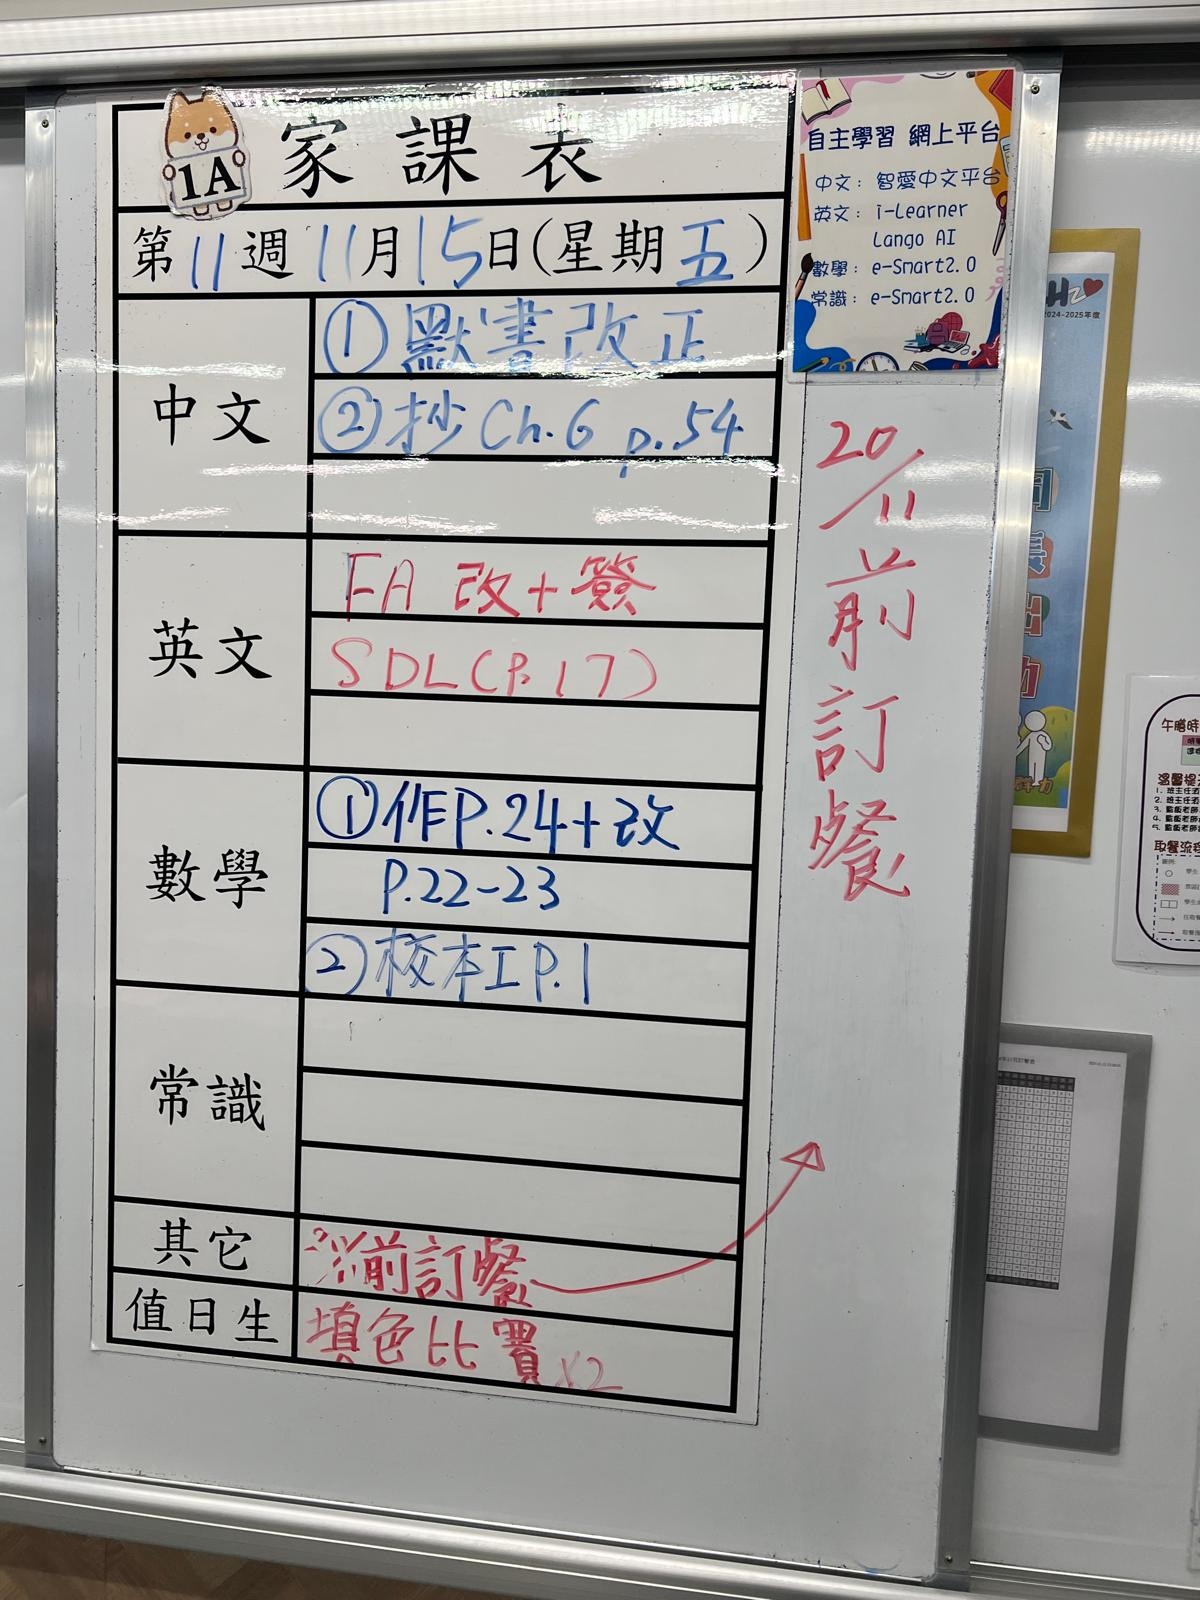 1A
家課表
第11週11月15日(星期五)
中文
①默書改正
②抄Ch.6 p.54
英文
FA 改+簽
SDL(P.17)
數學
①作P.24+改
P.22-23
②校本I P.1
常識
其它
前訂餐
值日生
填色比賽 x2
自主學習 網上平台
中文：智愛中文平台
英文：i-Learner
Lango AI
數學：e-Smart2.0
常識：e-Smart2.0
20/11前訂餐
2024-2025年度
午膳時
溫馨提
取餐流程